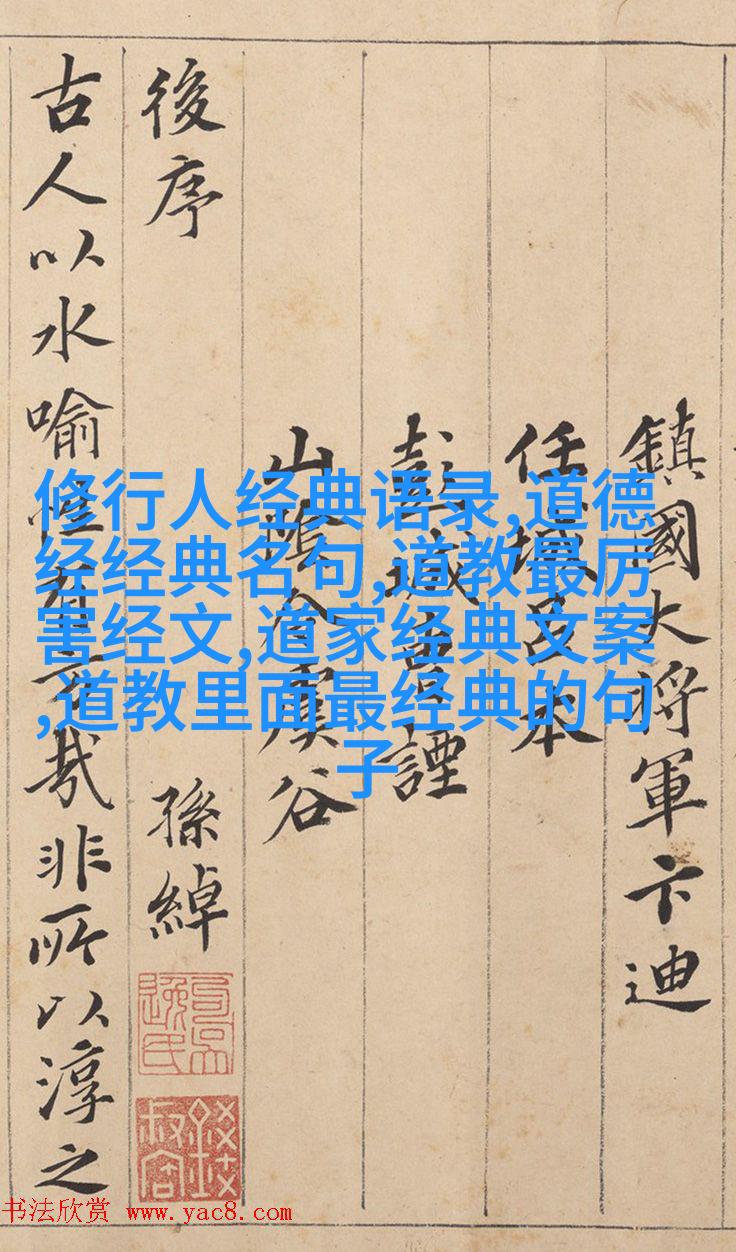 鎮國大將軍卞迪
任城呂本
彭城曹諲
山陰令虞谷
後序 孫綽
古人以水喻性有旨哉非所以淳之
修行人经典语录,道德
经经典名句,道教最厉
害经文,道家经典文案
,道教里面最经典的句
子
书法欣赏 www.yac8.com